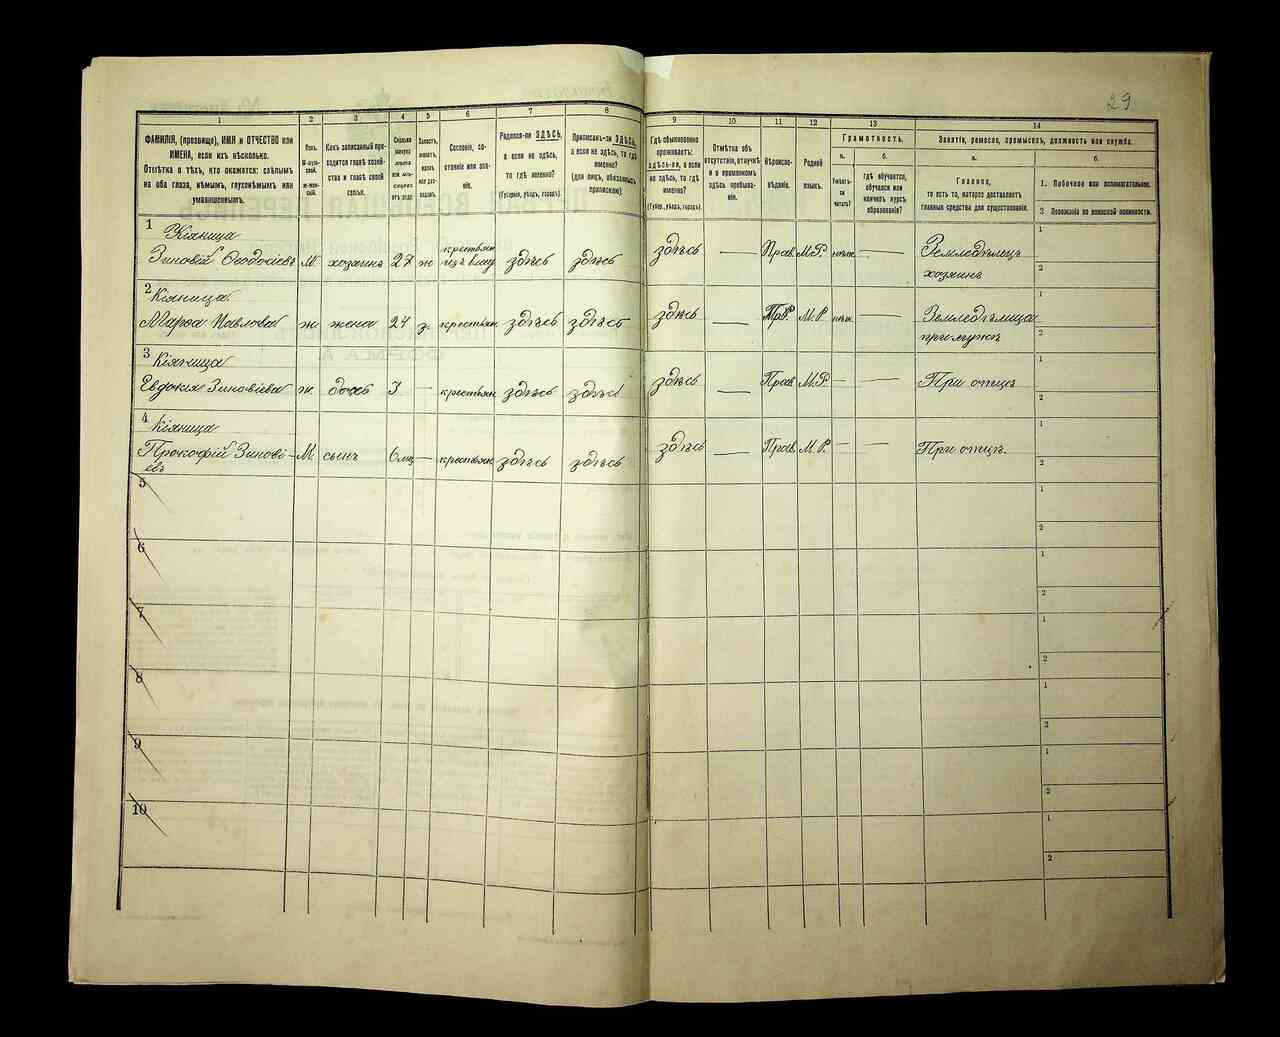 29
1
2
3
4
5
6
7
8
9
10
11
12
13
14
ФАМИЛІЯ, (прозвище), ИМЯ и ОТЧЕСТВО или
ИМЕНА, если ихъ нѣсколько.
Отмѣтка о тѣхъ, кто окажется: слѣпымъ
на оба глаза, нѣмымъ, глухонѣмымъ или
умалишеннымъ.
Полъ.
М-муж-
ской.
ж-жен-
скій.
Какъ записанный при-
ходится главѣ хозяй-
ства и главѣ своей
семьи.
Сколько
минуло
лѣтъ
или мѣ-
сяцевъ
отъ роду
Холостъ,
женатъ,
вдовъ
или раз-
веденъ.
Сословіе, со-
стояніе или зва-
ніе.
Родился-ли ЗДѢСЬ,
а если не здѣсь,
то гдѣ именно?
(Губернія, уѣздъ, городъ).
Приписанъ-ли ЗДѢСЬ,
а если не здѣсь, то гдѣ
именно?
(для лицъ, обязанныхъ
припискою).
Гдѣ обыкновенно
проживаетъ:
здѣсь-ли, а если
не здѣсь, то гдѣ
именно?
(Губер., уѣздъ, городъ).
Отмѣтка объ
отсутствіи, отлучкѣ
и о временномъ
здѣсь пребыва-
ніи.
Вѣроиспо-
вѣданіе.
Родной
языкъ.
Грамотность.
а.
б.
Умѣетъ-
ли
читать?
гдѣ обучается,
обучался или
кончилъ курсъ
образованія?
Занятіе, ремесло, промыселъ, должность или служба.
а.
б.
Главное,
то есть то, которое доставляетъ
главныя средства для существованія.
1. Побочное или вспомогательное.
2. Положеніе по воинской повинности.
1
Кіяница
Зиновій Ѳеодосіевъ М. хозяинъ 27 ж крестьян
изъ влад здѣсь здѣсь здѣсь — Прав М.Р. — Земледѣлецъ
хозяинъ
1
2
2
Кіяница
Марѳа Павлова ж. жена 24 з. крестьян здѣсь здѣсь здѣсь — М.Р. Земледѣлица
при мужѣ
1
2
3
Кіяница
Евдокія Зиновіева ж. дочь 3 — крестьян здѣсь здѣсь здѣсь — Прав М.Р. — — При отцѣ
1
2
4
Кіяница
Прокофій Зинові-
евъ М. сынъ 6 мц — крестьян здѣсь здѣсь здѣсь — Прав М.Р. — — При отцѣ.
1
2
5
1
2
6
1
2
7
1
2
8
1
2
9
1
2
10
1
2